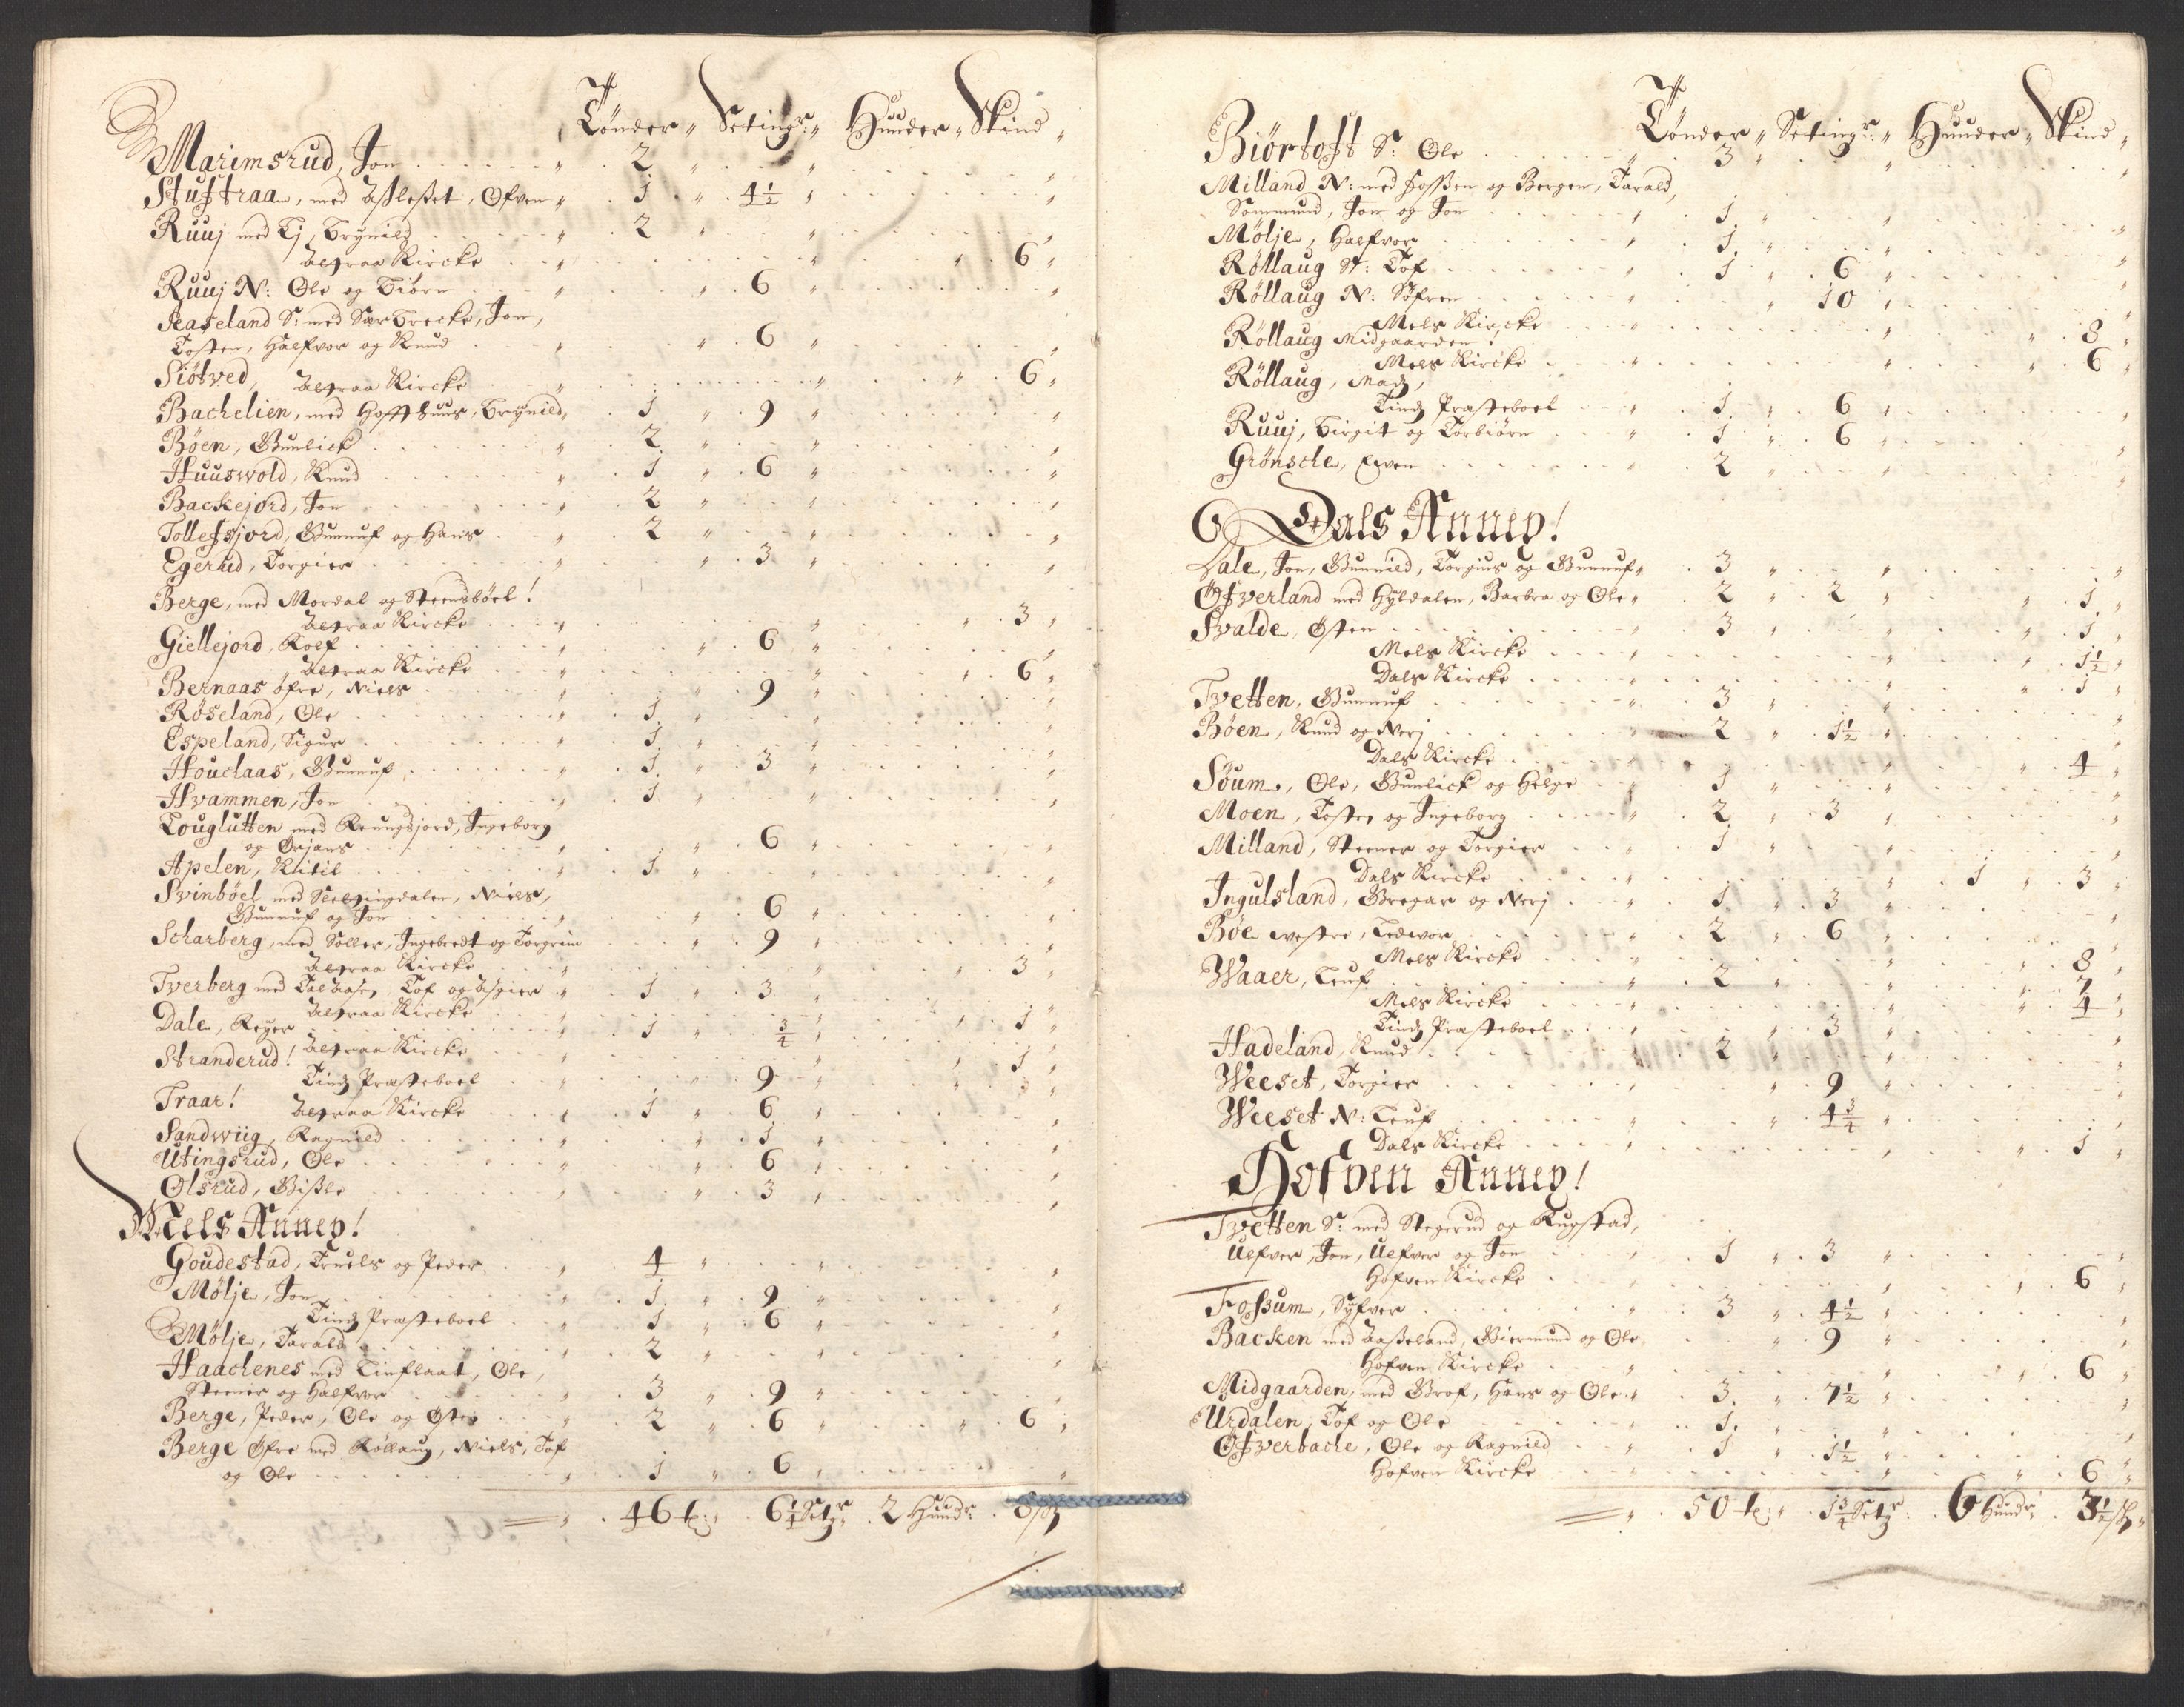 Tönder " Setingr: " Huuder " Skind "
Marimsrud, Jon " 2 " " "
Stuftraa, med Asleset, Ofven " 1 " 4½ " "
Ruuj med Ej, Brynild " 2 " " "
Atraa Kircke " " " 6 "
Ruuj N: Ole og Biörn " " 6 " "
Seaseland S: med Sarbrecke, Jon,
Tosten, Halfvor og Knud " " 6 " "
Siötved, Atraa Kircke " " " 6 "
Bachelien, med Hoffhuus, Brynild " 1 " 9 " "
Böen, Gunlick " 2 " " "
Huuswold, Knud " 1 " 6 " "
Backejord, Jon " 2 " " "
Tollefsjord, Gunnuf og Hans " 2 " " "
Egerud, Torgier " " 3 " "
Berge, med Mordal og Steensböel!
Atraa Kircke " " " 3 "
Giellejord, Rolf " " 6 " "
Atraa Kircke " " " 6 "
Bernaas öfre, Niels " " 9 " "
Röseland, Ole " 1 " " "
Espeland, Sigur " 1 " " "
Houclaas, Gunnuf " 1 " 3 " "
Hvammen, Jon " 1 " " "
Touglutten med Reungsjord, Ingeborg
og Örjans " " 6 " "
Apelen, Kitil " 1 " " "
Svinböel med Niels,
Gunnuf og Jon " " 6 " "
Scharberg, med Soller, Ingebredt og Torgrim " 9 " "
Atraa Kircke " " " 3 "
Tverberg med Tof og Asgier " 1 " 3 " "
Atraa Kircke
Dale, Reyer " 1 " ¾ " 1 "
Stranderud! Atraa Kircke " " " 1 "
Tindz Præsteboel " " 9 " "
Traar! Atraa Kircke " 1 " 6 " "
Sandwiig, Ragnild " " 1 " "
Utingsrud, Ole " " 6 " "
Olsrud, Gisle " " 3 " "
Mels Annex!
Goudestad, Truels og Peder " 4 " " "
Mölje, Jon " 1 " 9 " "
Tindz Præsteboel " 1 " 6 " "
Mölje, Tarald " 2 " " "
Haaclenes med Tinflaat, Ole,
Steener og Halfvor " 3 " 9 " "
Berge, Peder, Ole og Östen " 2 " 6 " " 6 "
Berge Öfre med Röllaug, Niels, Tof
og Ole " 1 " 6 " "
46 t: " 6¼ Setgr " 2 Hundr: 8 sk
Tönder " Setingr: " Huuder " Skind "
Biörtoft S: Ole " 3 " " "
Milland N: med Fossen og Bergen, Tarald,
Sommund, Jon og Jon " 1 " " "
Mölje, Halfvor " 1 " " "
Röllaug S: Tof " 1 " 6 " "
Röllaug N: Söfren " " 10 " "
Mels Kircke " " " 8 "
Röllaug Midgaarden!
Mels Kircke " " " 6 "
Röllaug, Madz,
Tindz Præsteboel " 1 " 6 " "
Ruuj, Birgit og Torbiörn " 1 " 6 " "
Grönscle, Even " 2 " " "
Dals Annex!
Dale, Jon, Gunnild, Torgiuls og Gunnuf " 3 " " "
Öfverland med Hyldalen, Barbra og Ole " 2 " 2 " " 1 "
Svalde, Östen " 3 " " " 1 "
Mels Kircke " " " 1½ "
Dals Kircke " " " 1 "
Tvetten, Gunnuf " 3 " " "
Böen, Knud og Nerj " 2 " 1½ " "
Dals Kircke " " " 4 "
Söum, Ole, Gunlick og Helge " 1 " " "
Moen, Tosten og Ingeborg " 2 " 3 " "
Milland, Steener og Torgier " 1 " " "
Dals Kircke " " 1 " 3 "
Ingulsland, Gregar og Nerj " 1 " 3 " "
Böe westre, Tedwor " 2 " 6 " "
Mels Kircke " " " 8 "
Waaer, Leuf " 2 " " " 7 "
Mels Kircke " " " 4 "
Tindz Præsteboel " " 3 " "
Hadeland, Knud " 2 " " "
Weeset, Torgier " " 9 " "
Weeset N: Leuf " " 4¾ " "
Dals Kircke " " " 1 "
Hofven Annex!
Tvetten S: med Stegerud og Rugstad,
Uefver, Jon, Uefver og Jon " 1 " 3 " "
Hofven Kircke " " " 6 "
Fossum, Syfver " 3 " 4½ " "
Backen med Aaseland, Giermund og Ole " 9 " "
Hofven Kircke " " " 6 "
Midgaarden, med Grof, Hans og Ole " 3 " 7½ " "
Urdalen, Tof og Ole " 1 " " "
Öfverbacke, Ole og Ragnild " 1 " 1½ " "
Hofven Kircke " " " 6 "
50 t: " 1¾ Setgr: 6 Hundr: 3½ sk